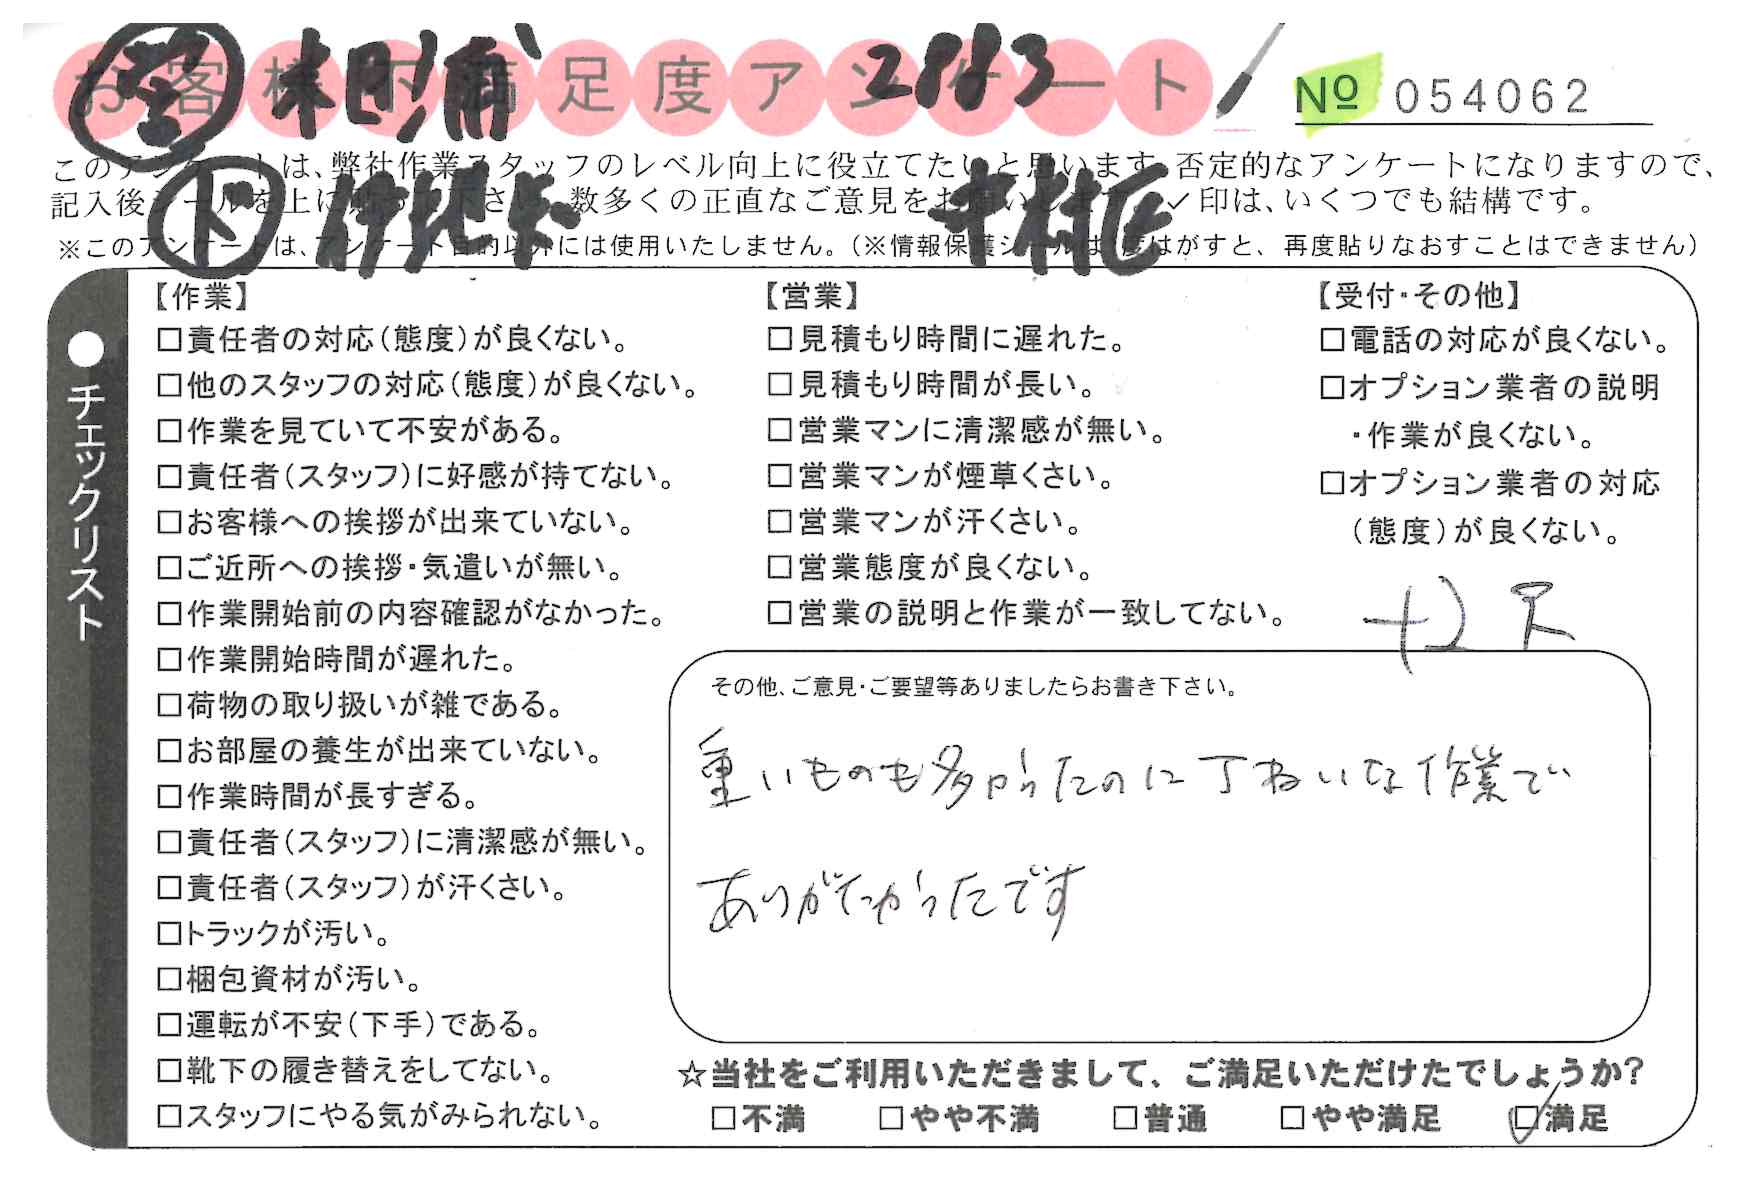 お客様ご満足度アンケート
2883
No 054062
このアンケートは、弊社作業スタッフのレベル向上に役立てたいと思います。否定的なアンケートになりますので、
下
中村区
記入後シールを上に貼って下さい。数多くの正直なご意見をお願いします。✓印は、いくつでも結構です。
※このアンケートは、アンケート目的以外には使用いたしません。(※情報保護シールは1度はがすと、再度貼りなおすことはできません)
●チェックリスト
【作業】
□責任者の対応(態度)が良くない。
□他のスタッフの対応(態度)が良くない。
□作業を見ていて不安がある。
□責任者(スタッフ)に好感が持てない。
□お客様への挨拶が出来ていない。
□ご近所への挨拶・気遣いが無い。
□作業開始前の内容確認がなかった。
□作業開始時間が遅れた。
□荷物の取り扱いが雑である。
□お部屋の養生が出来ていない。
□作業時間が長すぎる。
□責任者(スタッフ)に清潔感が無い。
□責任者(スタッフ)が汗くさい。
□トラックが汚い。
□梱包資材が汚い。
□運転が不安(下手)である。
□靴下の履き替えをしてない。
□スタッフにやる気がみられない。
【営業】
□見積もり時間に遅れた。
□見積もり時間が長い。
□営業マンに清潔感が無い。
□営業マンが煙草くさい。
□営業マンが汗くさい。
□営業態度が良くない。
□営業の説明と作業が一致してない。
【受付・その他】
□電話の対応が良くない。
□オプション業者の説明
・作業が良くない。
□オプション業者の対応
(態度)が良くない。
その他、ご意見・ご要望等ありましたらお書き下さい。
重いものも多かったのに丁ねいな作業で
ありがたかったです
☆当社をご利用いただきまして、ご満足いただけたでしょうか?
□不満 □やや不満 □普通 □やや満足 ☑満足